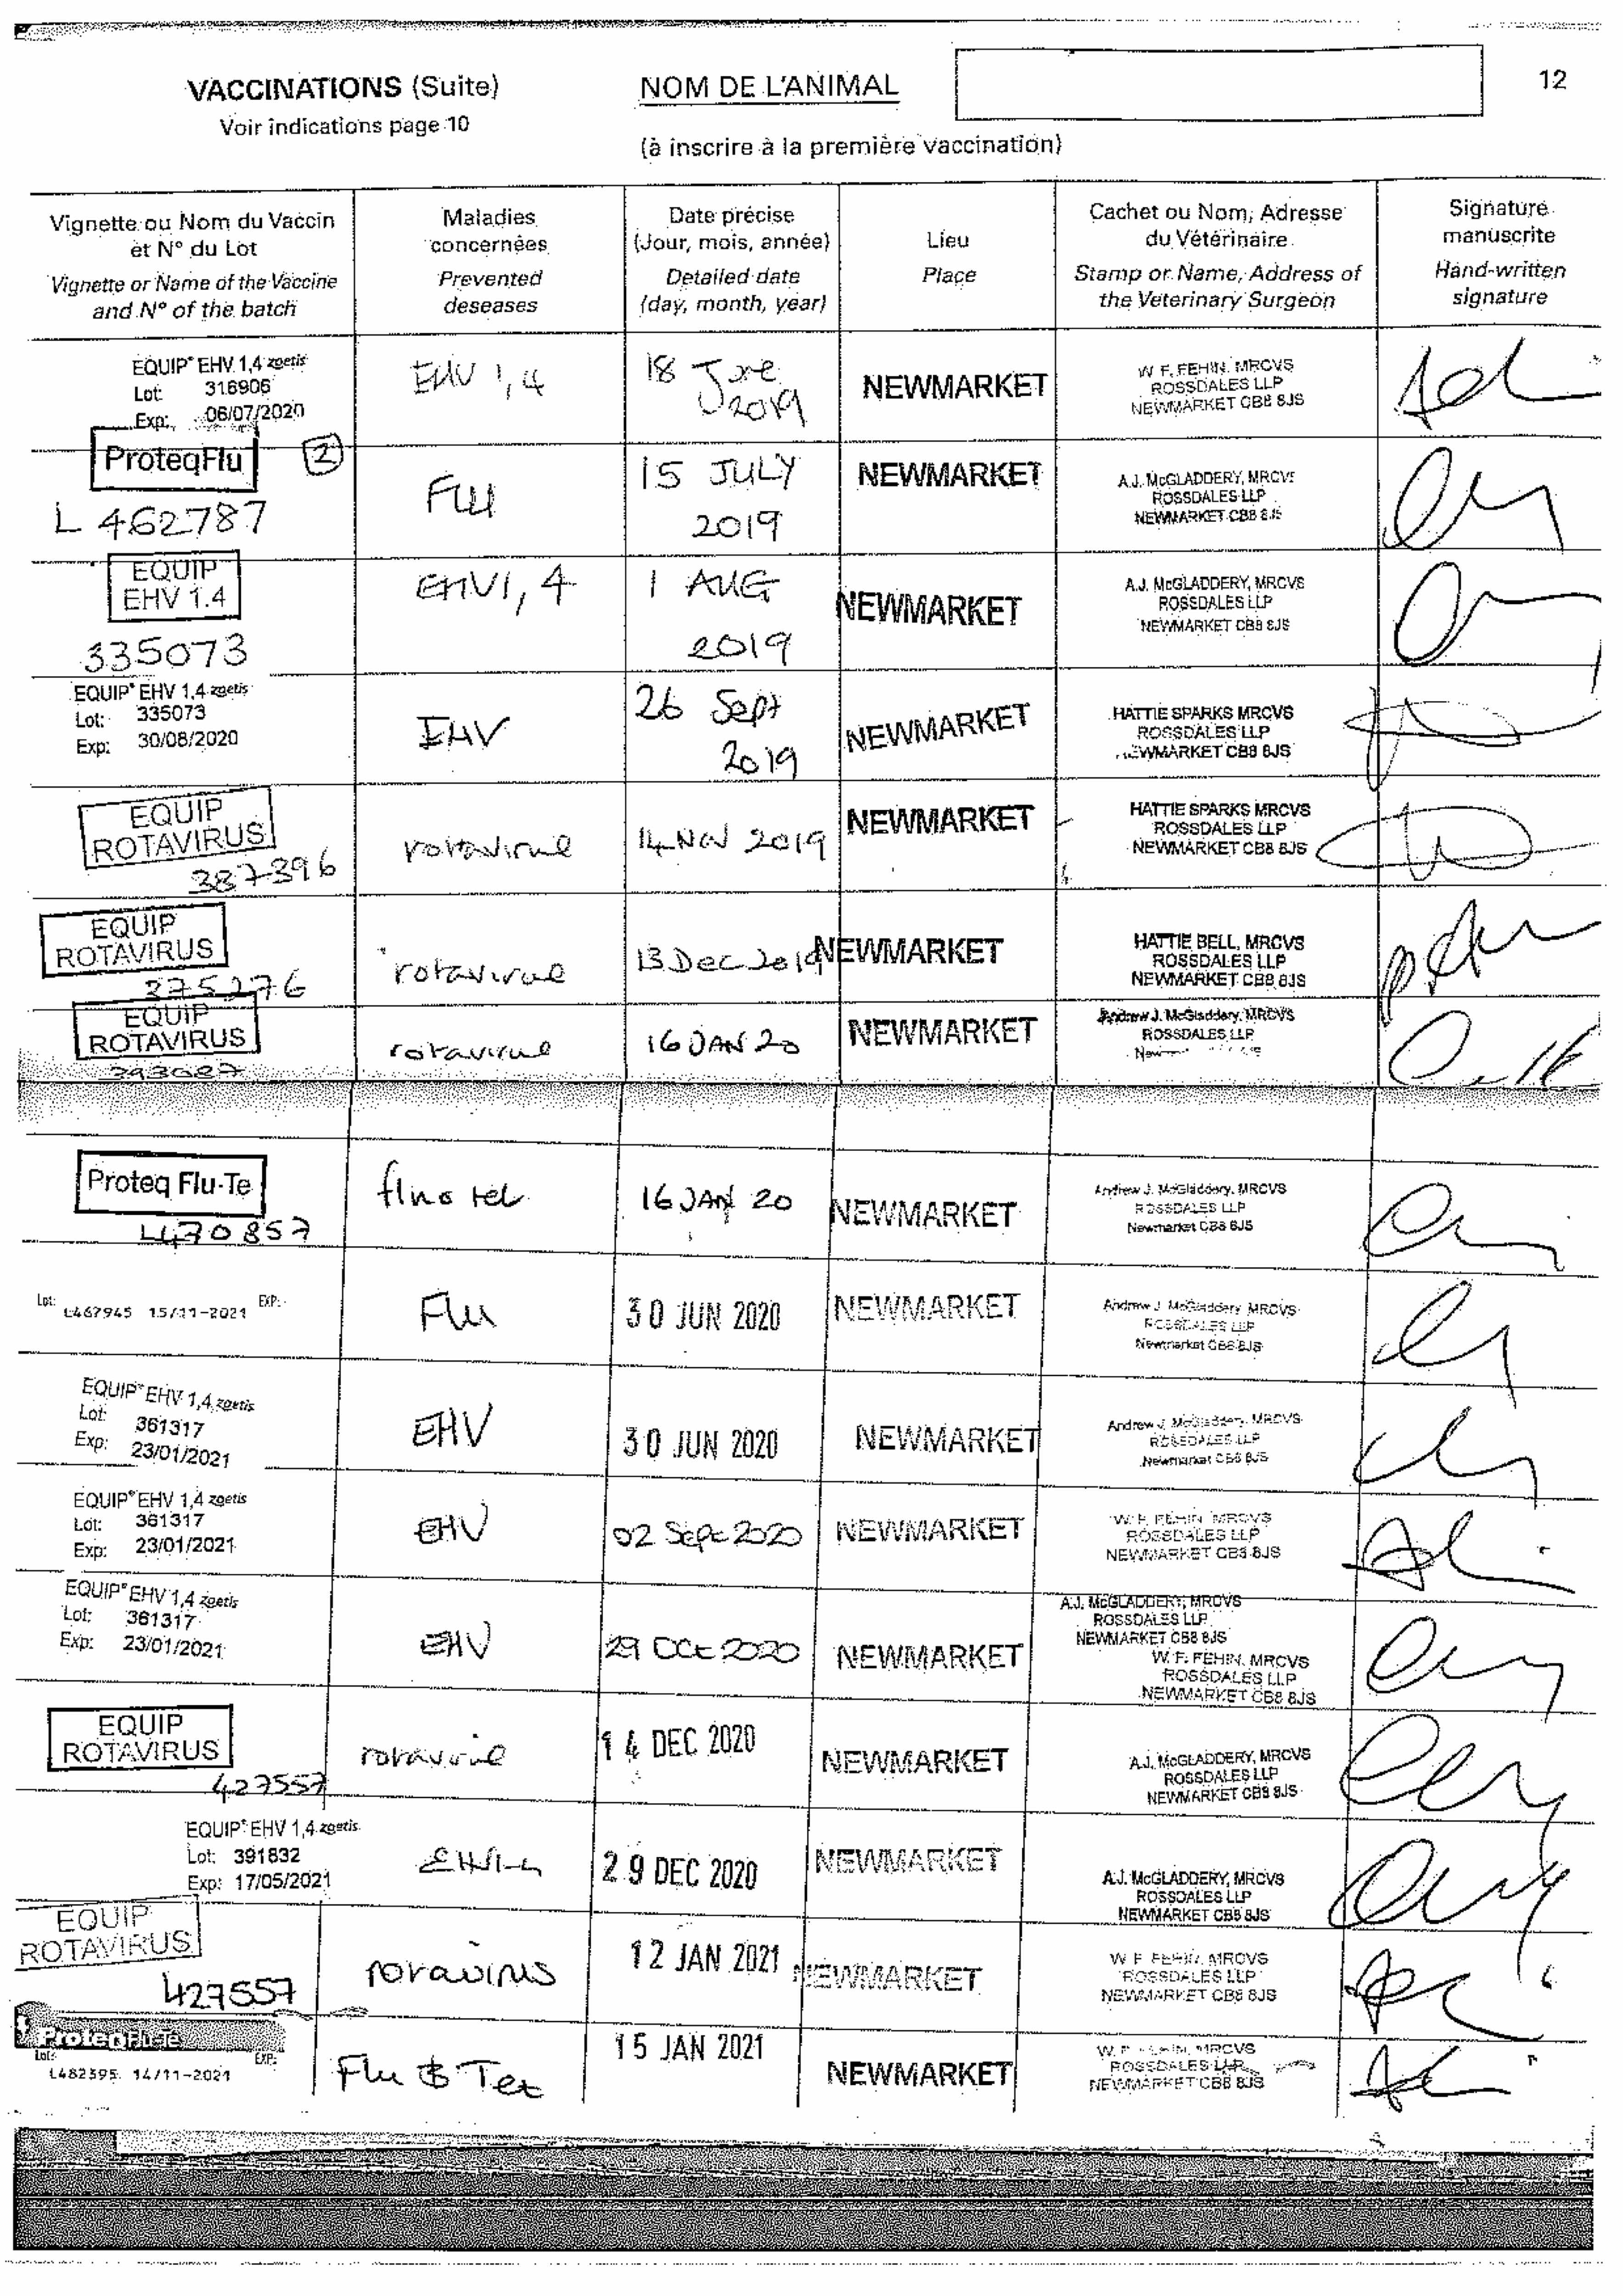 VACCINATIONS (Suite)
Voir indications page 10
NOM DE L'ANIMAL
12
(à inscrire à la première vaccination)
Vignette ou Nom du Vaccin
et N° du Lot
Vignette or Name of the Vaccine
and N° of the batch
Maladies
concernées
Prevented
deseases
Date précise
(Jour, mois, année)
Detailed date
(day, month, year)
Lieu
Place
Cachet ou Nom, Adresse
du Vétérinaire
Stamp or Name, Address of
the Veterinary Surgeon
Signature
manuscrite
Hand-written
signature
EQUIP® EHV 1,4 zoetis
Lot: 316906
Exp: 06/07/2020
EHV 1,4
18 June
2019
NEWMARKET
W. F. FEHIN. MRCVS
ROSSDALES LLP
NEWMARKET CB8 8JS
ProteqFlu
2
L 462787
FLU
15 JULY
2019
NEWMARKET
A.J. McGLADDERY, MRCVS
ROSSDALES LLP
NEWMARKET CB8 8JS
EQUIP
EHV 1.4
335073
EHV1, 4
1 AUG
2019
NEWMARKET
A.J. McGLADDERY, MRCVS
ROSSDALES LLP
NEWMARKET CB8 8JS
EQUIP® EHV 1,4 zoetis
Lot: 335073
Exp: 30/08/2020
EHV
26 Sept
2019
NEWMARKET
HATTIE SPARKS MRCVS
ROSSDALES LLP
NEWMARKET CB8 8JS
EQUIP
ROTAVIRUS
387396
rotavirus
14 Nov 2019
NEWMARKET
HATTIE SPARKS MRCVS
ROSSDALES LLP
NEWMARKET CB8 8JS
EQUIP
ROTAVIRUS
375276
rotavirus
13 Dec 2019
NEWMARKET
HATTIE BELL, MRCVS
ROSSDALES LLP
NEWMARKET CB8 8JS
EQUIP
ROTAVIRUS
393087
rotavirus
16 JAN 20
NEWMARKET
Andrew J. McGladdery, MRCVS
ROSSDALES LLP
Proteq Flu-Te
L470857
flu & tet
16 JAN 20
NEWMARKET
Andrew J. McGladdery, MRCVS
ROSSDALES LLP
Newmarket CB8 8JS
Lot: L467945 15/11-2021 EXP:
Flu
30 JUN 2020
NEWMARKET
Andrew J. McGladdery, MRCVS
ROSSDALES LLP
Newmarket CB8 8JS
EQUIP® EHV 1,4 zoetis
Lot: 361317
Exp: 23/01/2021
EHV
30 JUN 2020
NEWMARKET
Andrew J. McGladdery, MRCVS
ROSSDALES LLP
Newmarket CB8 8JS
EQUIP® EHV 1,4 zoetis
Lot: 361317
Exp: 23/01/2021
EHV
02 Sept 2020
NEWMARKET
W. F. FEHIN MRCVS
ROSSDALES LLP
NEWMARKET CB8 8JS
EQUIP® EHV 1,4 zoetis
Lot: 361317
Exp: 23/01/2021
EHV
29 Oct 2020
NEWMARKET
A.J. McGLADDERY, MRCVS
ROSSDALES LLP
NEWMARKET CB8 8JS
W. F. FEHIN. MRCVS
ROSSDALES LLP
NEWMARKET CB8 8JS
EQUIP
ROTAVIRUS
427557
rotavirus
14 DEC 2020
NEWMARKET
A.J. McGLADDERY, MRCVS
ROSSDALES LLP
NEWMARKET CB8 8JS
EQUIP® EHV 1,4 zoetis
Lot: 391832
Exp: 17/05/2021
EHV1-4
29 DEC 2020
NEWMARKET
A.J. McGLADDERY, MRCVS
ROSSDALES LLP
NEWMARKET CB8 8JS
EQUIP
ROTAVIRUS
427557
rotavirus
12 JAN 2021
NEWMARKET
W. F. FEHIN. MRCVS
ROSSDALES LLP
NEWMARKET CB8 8JS
ProteqFlu-Te
Lot: L482395 14/11-2021 EXP:
Flu & Tet
15 JAN 2021
NEWMARKET
W. F. FEHIN. MRCVS
ROSSDALES LLP
NEWMARKET CB8 8JS